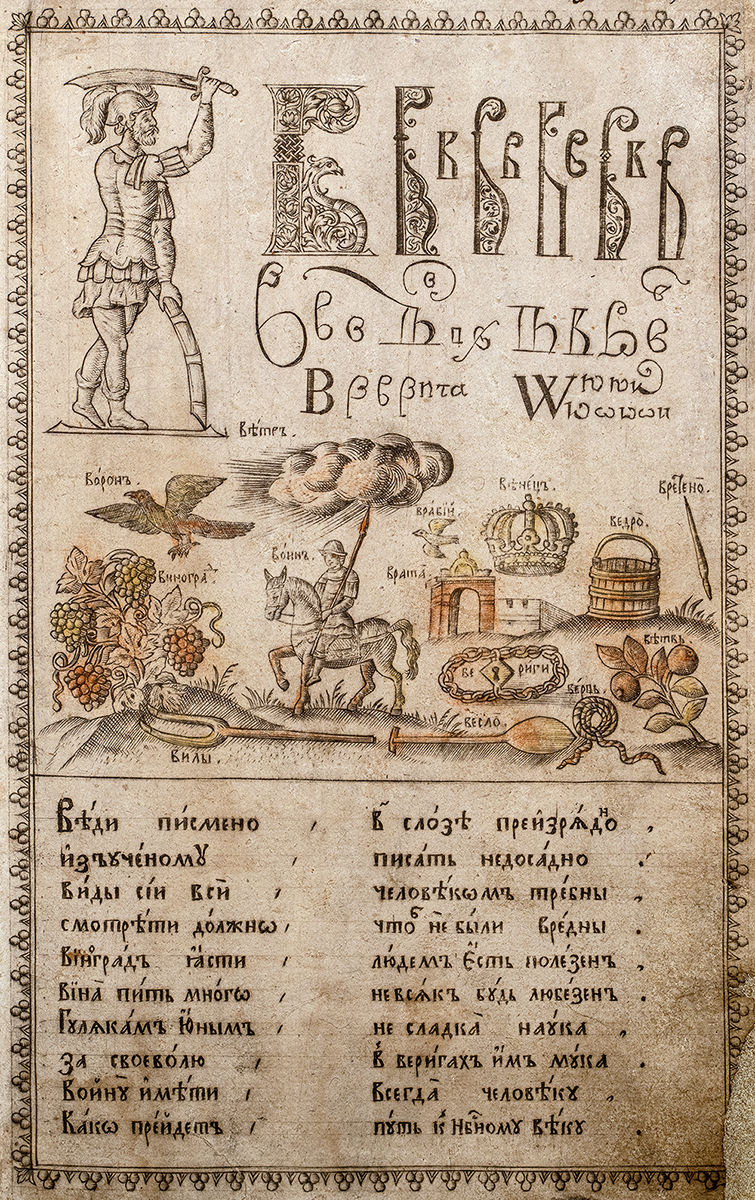 В В в В в В в В в В
В в в
В
вѣтръ.
во́ронъ.
вѣне́цъ.
врете́но.
врабі́й
ведро̀.
во́инъ.
виногра́
врата̀.
вѣтвь.
ве риги
ве́рвь.
весло̀.
вилы̀.
Вѣ́ди пи́смено , в̾ сло́зѣ преи҆зрѧ́дно ,
и҆зъуче́ному , писа́ть недоса́дно .
ви́ды сі́и всѝ , человѣ́комъ тре́бны ,
смотрѣ́ти до́лжнѡ , что́б не бы́ли вре́дны .
віногра́дъ ꙗ҆́сти , лю́демъ є҆́сть поле́зенъ ,
віна̀ пи́ть мно́гѡ , невсѧ́къ бу́дь любе́зенъ .
Гулѧка́мъ ю҆́нымъ , не сладка̀ нау́ка ,
за своево́лю , в̾ вери́гахъ и҆̀мъ му́ка .
Войну̀ и҆мѣ́ти , всегда̀ человѣ́ку ,
Ка́кѡ пре́йдетъ , пу́ть к̾ нбⷭ҇ному вѣ́ку .